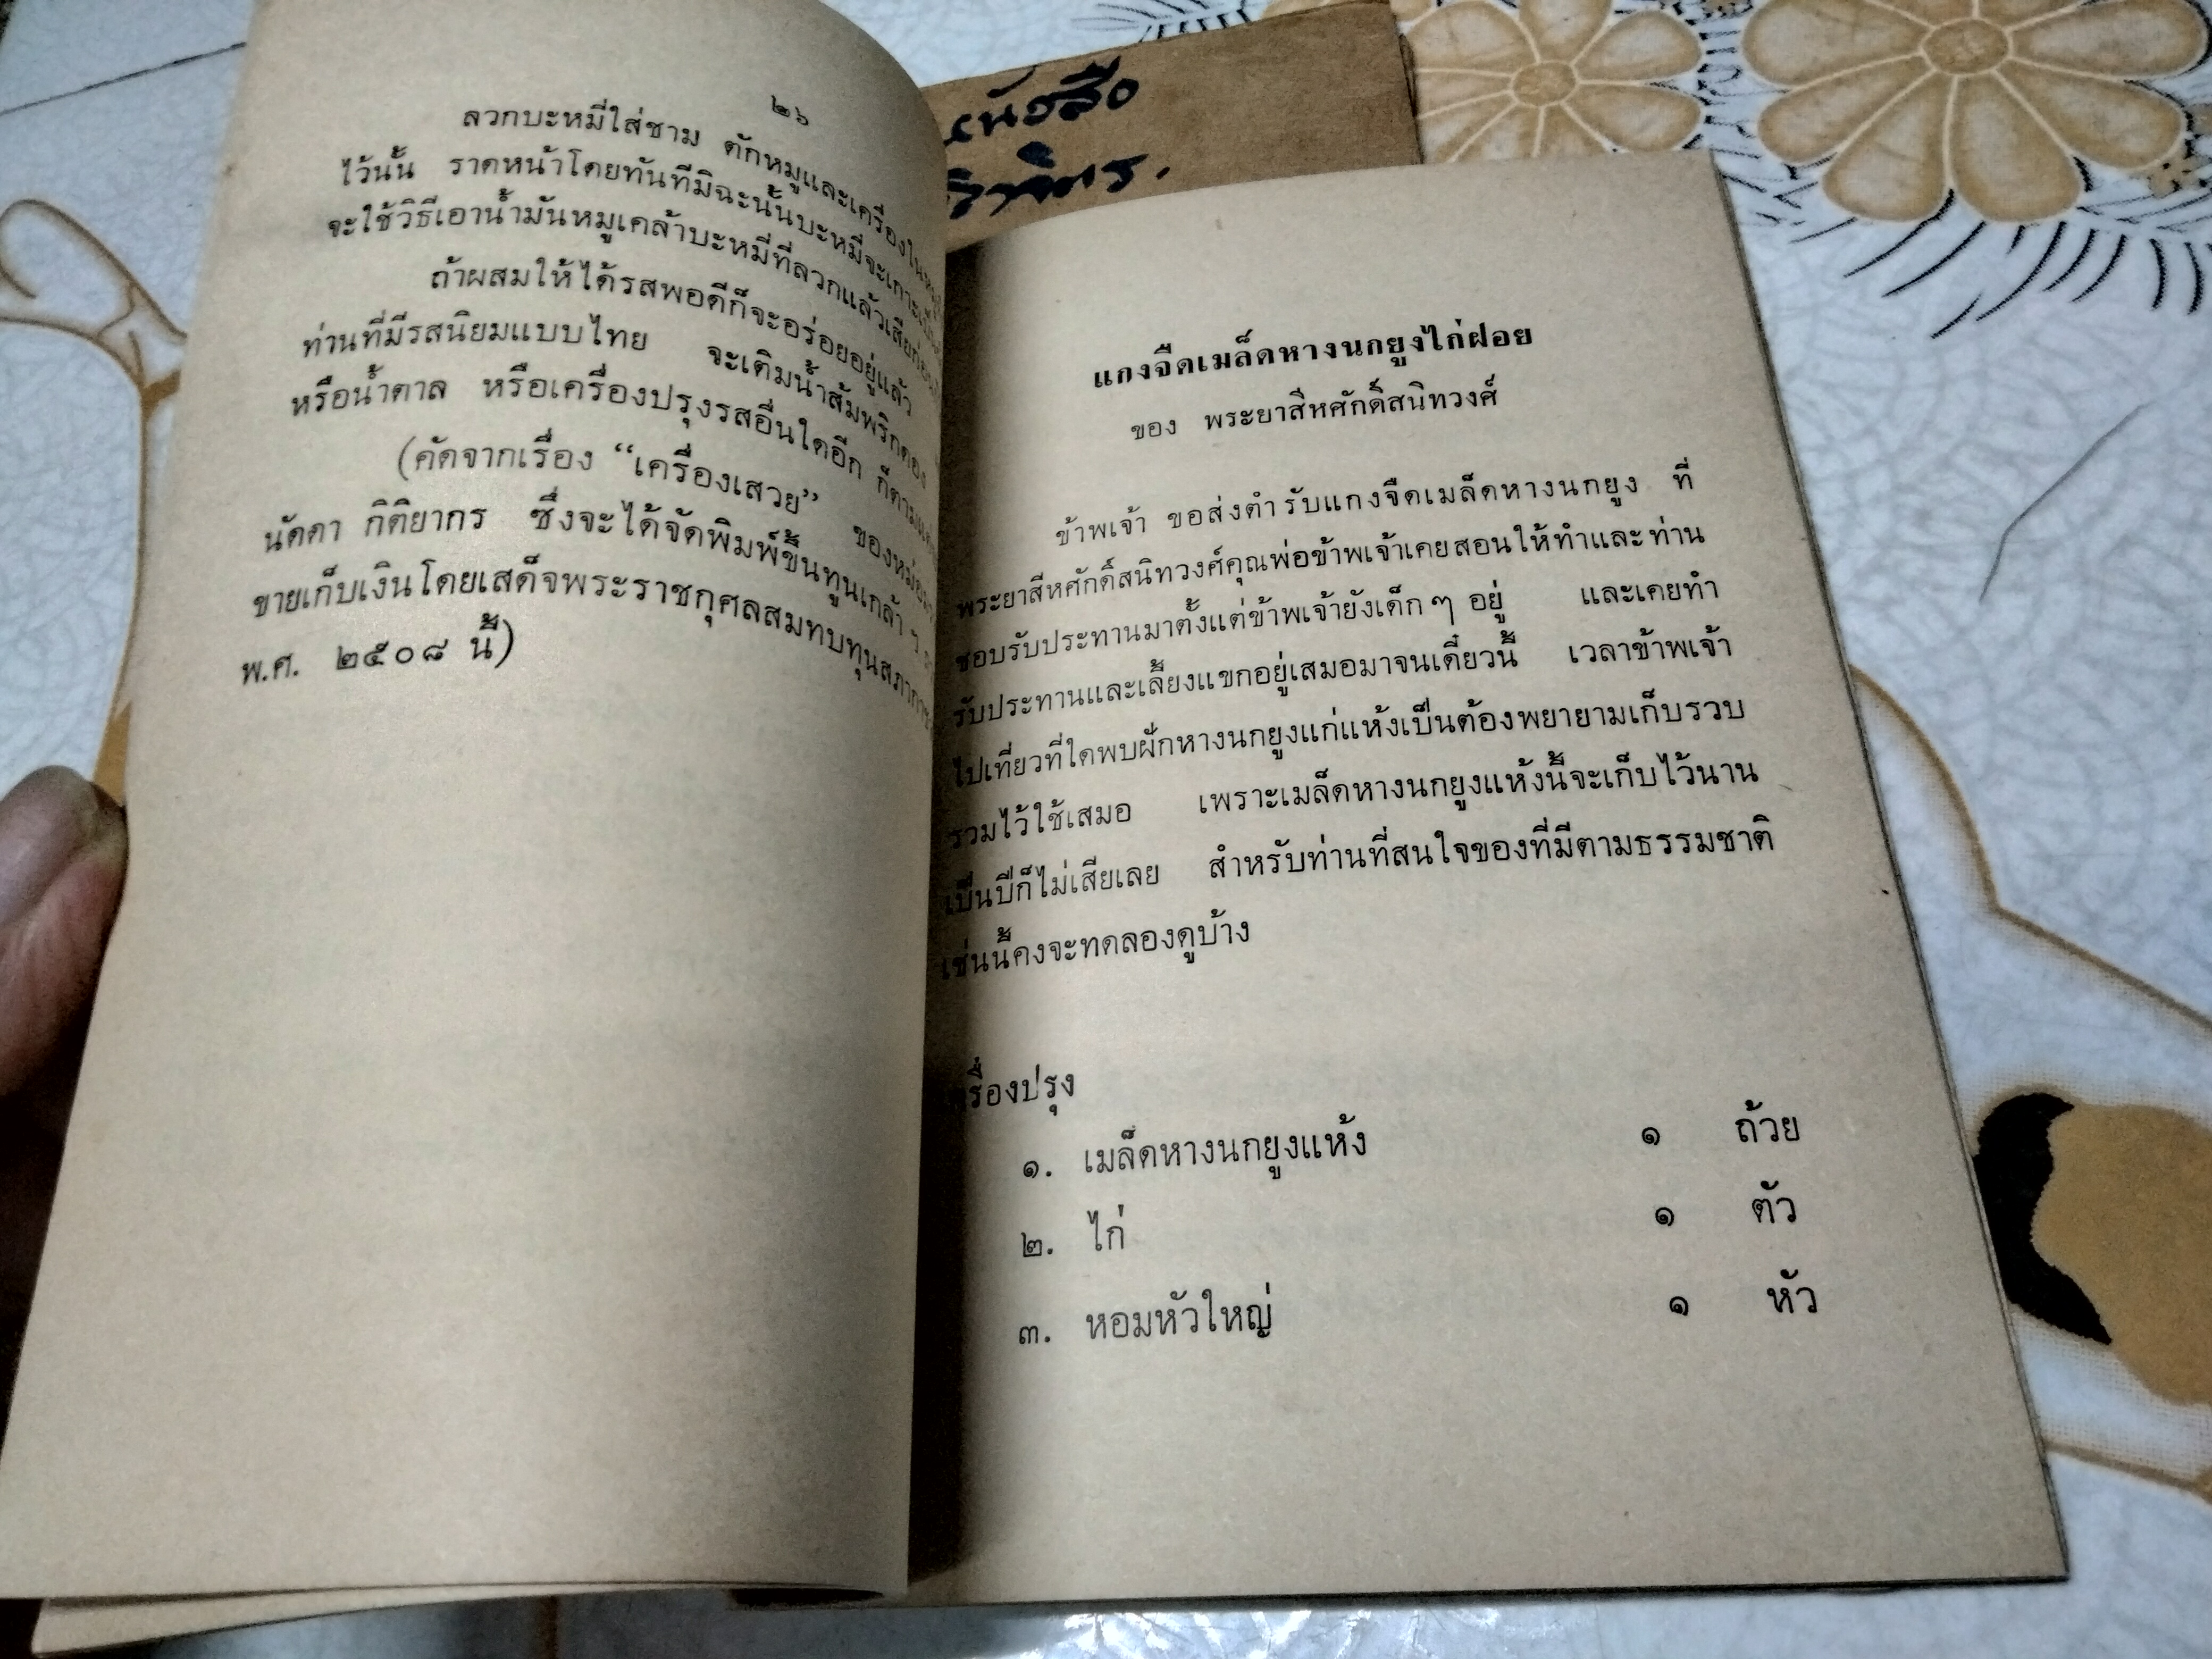 ๒๖
ลวกบะหมี่ใส่ชาม ตักหมูและเครื่องใน
ไว้นั้น ราดหน้าโดยทันทีมิฉะนั้นบะหมี่จะเกาะ
จะใช้วิธีเอาน้ำมันหมูเคล้าบะหมี่ที่ลวกแล้วเสียก่อน
ถ้าผสมให้ได้รสพอดีก็จะอร่อยอยู่แล้ว
ท่านที่มีรสนิยมแบบไทย จะเติมน้ำส้มพริกดอง
หรือน้ำตาล หรือเครื่องปรุงรสอื่นใดอีก ก็ตามแต่
(คัดจากเรื่อง “เครื่องเสวย” ของหม่อม
นัดดา กิติยากร ซึ่งจะได้จัดพิมพ์ขึ้นทูนเกล้า ฯ
ขายเก็บเงินโดยเสด็จพระราชกุศลสมทบทุนสภากาช
พ.ศ. ๒๕๐๘ นี้)
หนังสือ
แกงจืดเมล็ดหางนกยูงไก่ฝอย
ของ พระยาสีหศักดิ์สนิทวงศ์
ข้าพเจ้า ขอส่งตำรับแกงจืดเมล็ดหางนกยูง ที่
พระยาสีหศักดิ์สนิทวงศ์คุณพ่อข้าพเจ้าเคยสอนให้ทำและท่าน
ชอบรับประทานมาตั้งแต่ข้าพเจ้ายังเด็ก ๆ อยู่ และเคยทำ
รับประทานและเลี้ยงแขกอยู่เสมอมาจนเดี๋ยวนี้ เวลาข้าพเจ้า
ไปเที่ยวที่ใดพบฝักหางนกยูงแก่แห้งเป็นต้องพยายามเก็บรวบ
รวมไว้ใช้เสมอ เพราะเมล็ดหางนกยูงแห้งนี้จะเก็บไว้นาน
เป็นปีก็ไม่เสียเลย สำหรับท่านที่สนใจของที่มีตามธรรมชาติ
เช่นนี้คงจะทดลองดูบ้าง
เครื่องปรุง
๑. เมล็ดหางนกยูงแห้ง ๑ ถ้วย
๒. ไก่ ๑ ตัว
๓. หอมหัวใหญ่ ๑ หัว